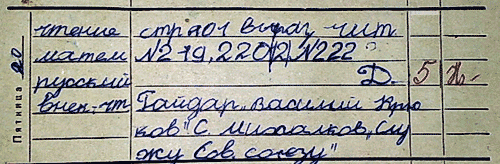 Пятница 20
чтение стр 101 выраз. чит.
матем №219, 220(2), №222
русский Д. 5
внек. чт Гайдар „Василий Крю
ков" С. Михалков „Слу
жу Сов. союзу"